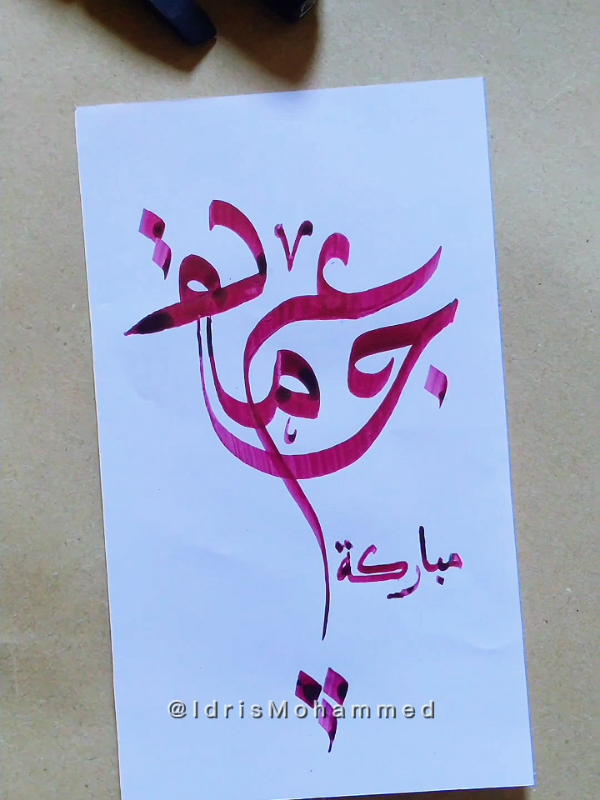 جمعة
مباركة
@IdrisMohammed